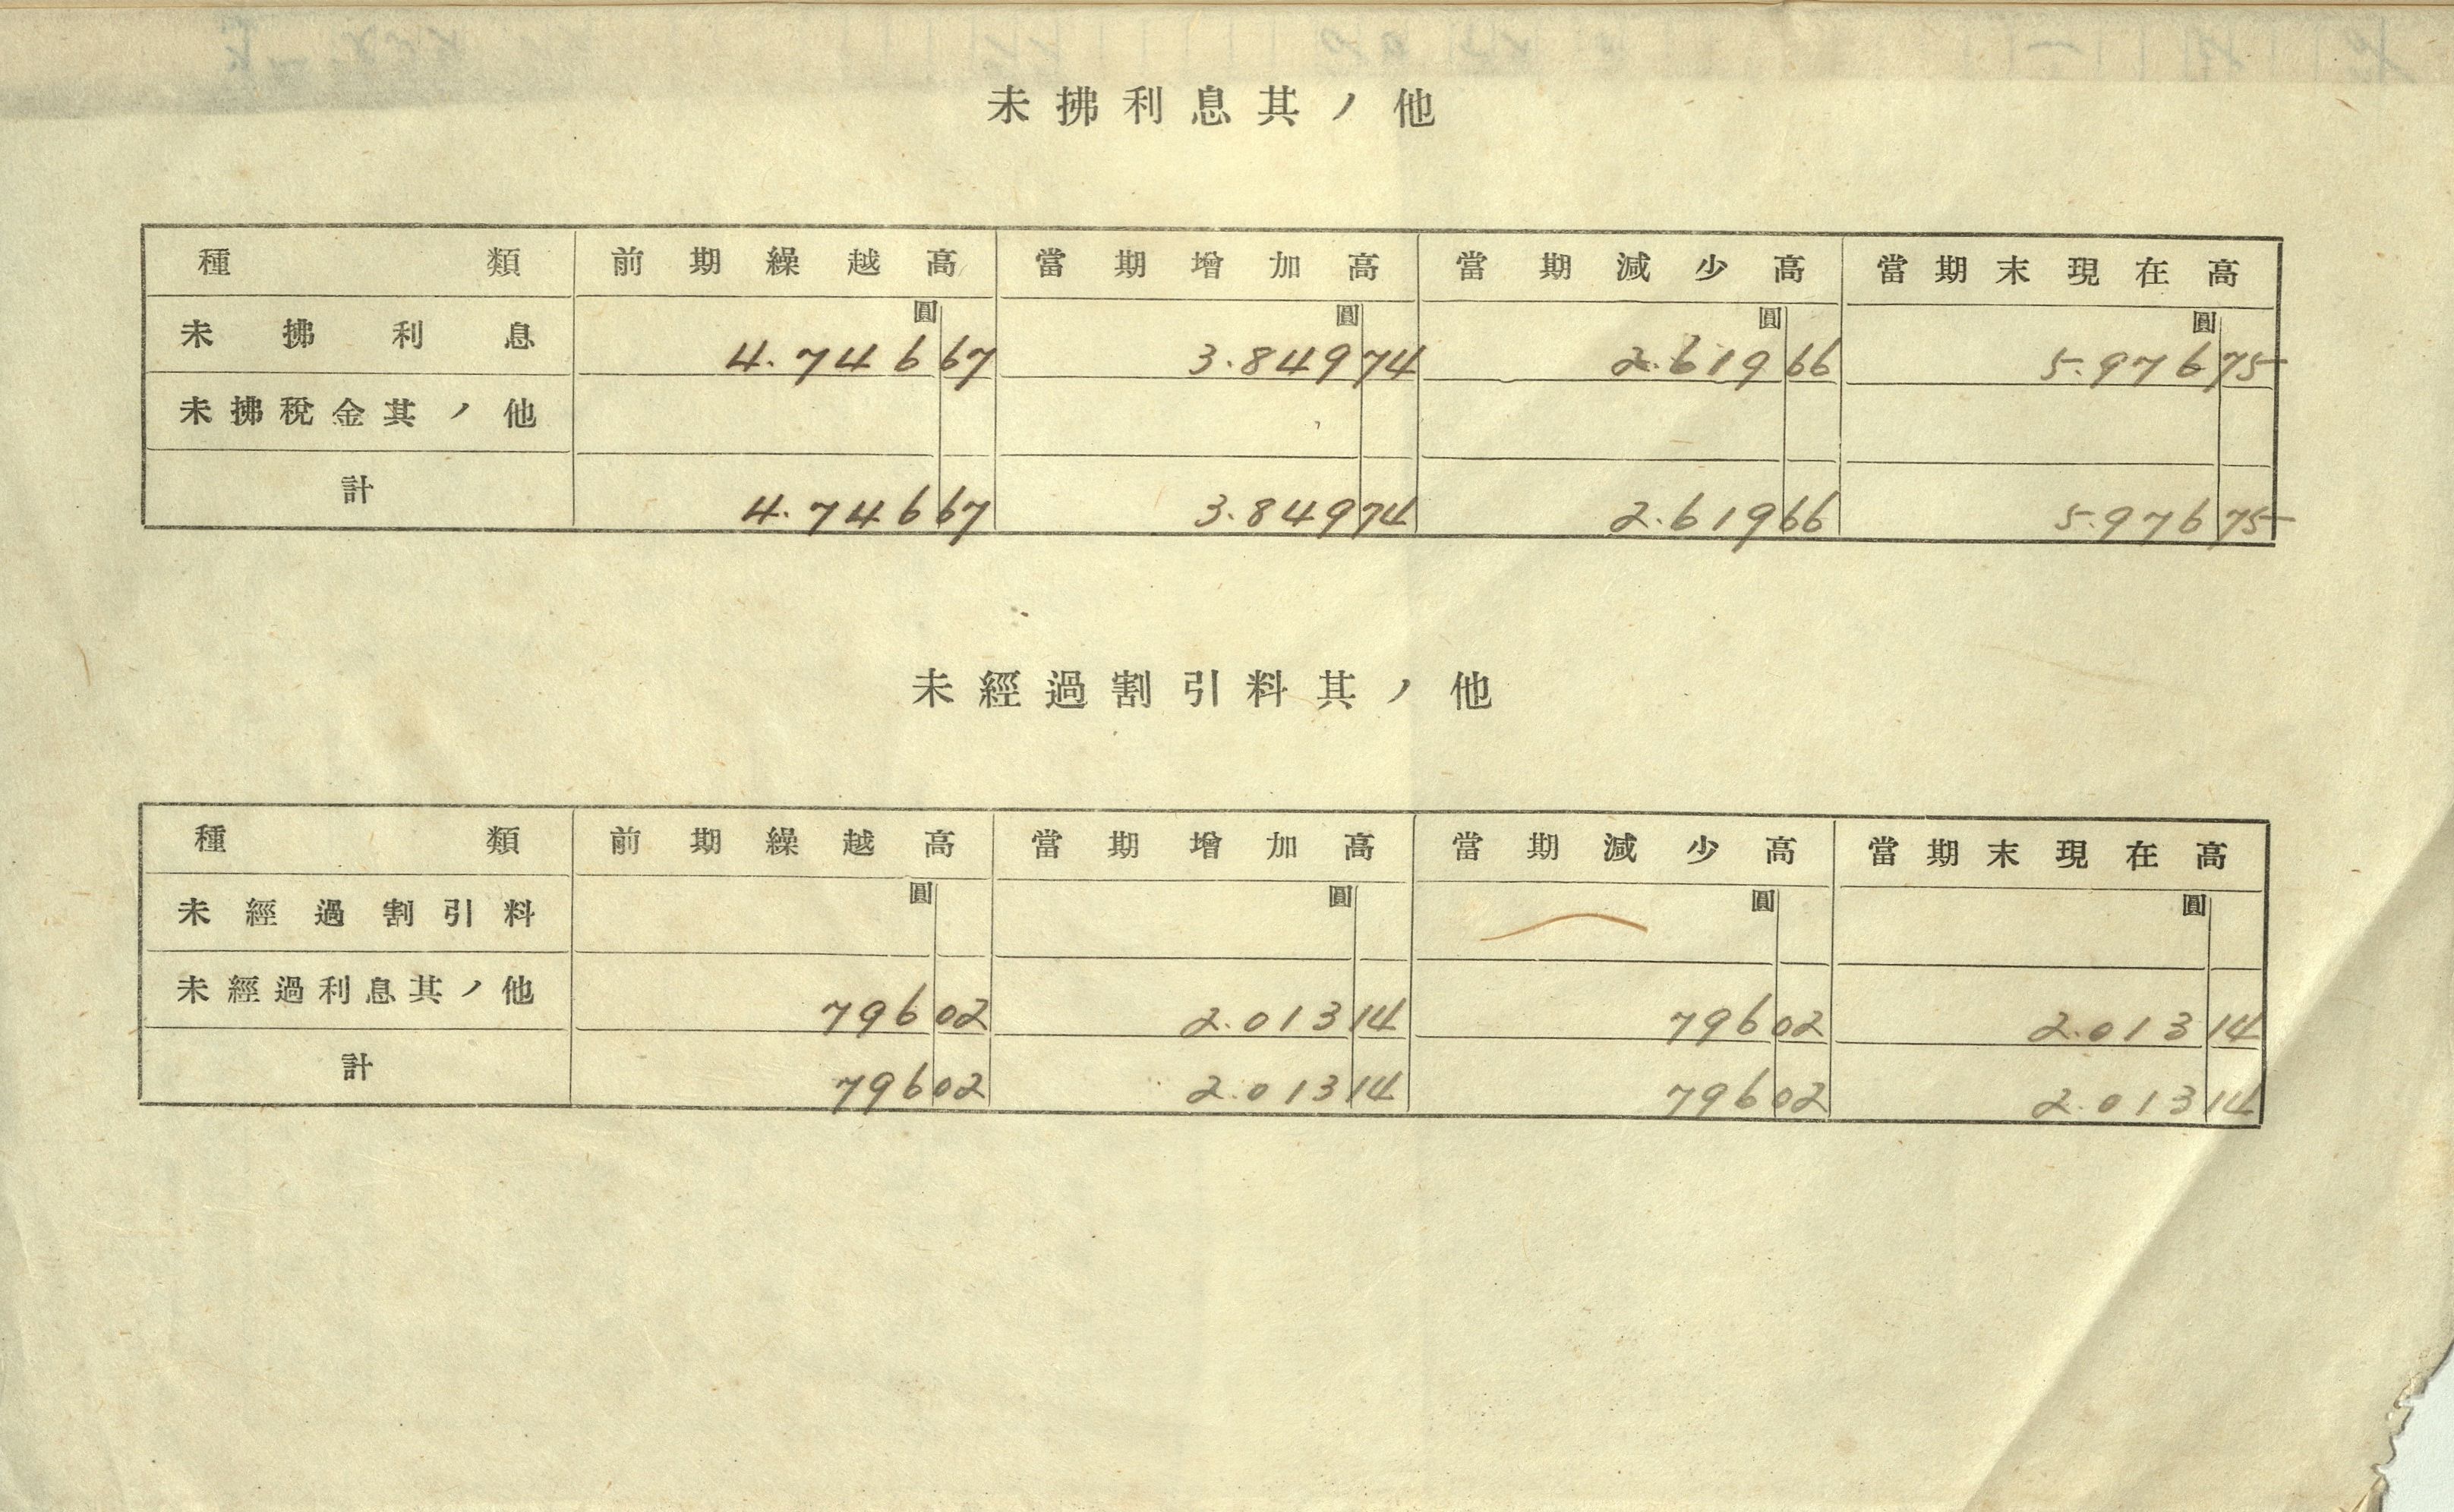 未拂利息其ノ他
種類 前期繰越高 當期增加高 當期減少高 當期末現在高
圓 圓 圓 圓
未拂利息 4.746 67 3.849 74 2.619 66 5.976 75
未拂稅金其ノ他
計 4.746 67 3.849 74 2.619 66 5.976 75
未經過割引料其ノ他
種類 前期繰越高 當期增加高 當期減少高 當期末現在高
圓 圓 圓 圓
未經過割引料
未經過利息其ノ他 796 02 2.013 14 796 02 2.013 14
計 796 02 2.013 14 796 02 2.013 14